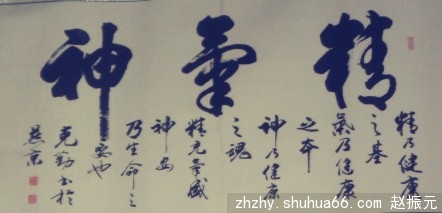 精氣神
精乃健康
之基
氣乃健康
之本
神乃健康
之魂
精充氣盛
神安
乃生命之
要也
克勤書於
燕京
zhzhy.shuhua66.com 赵振元